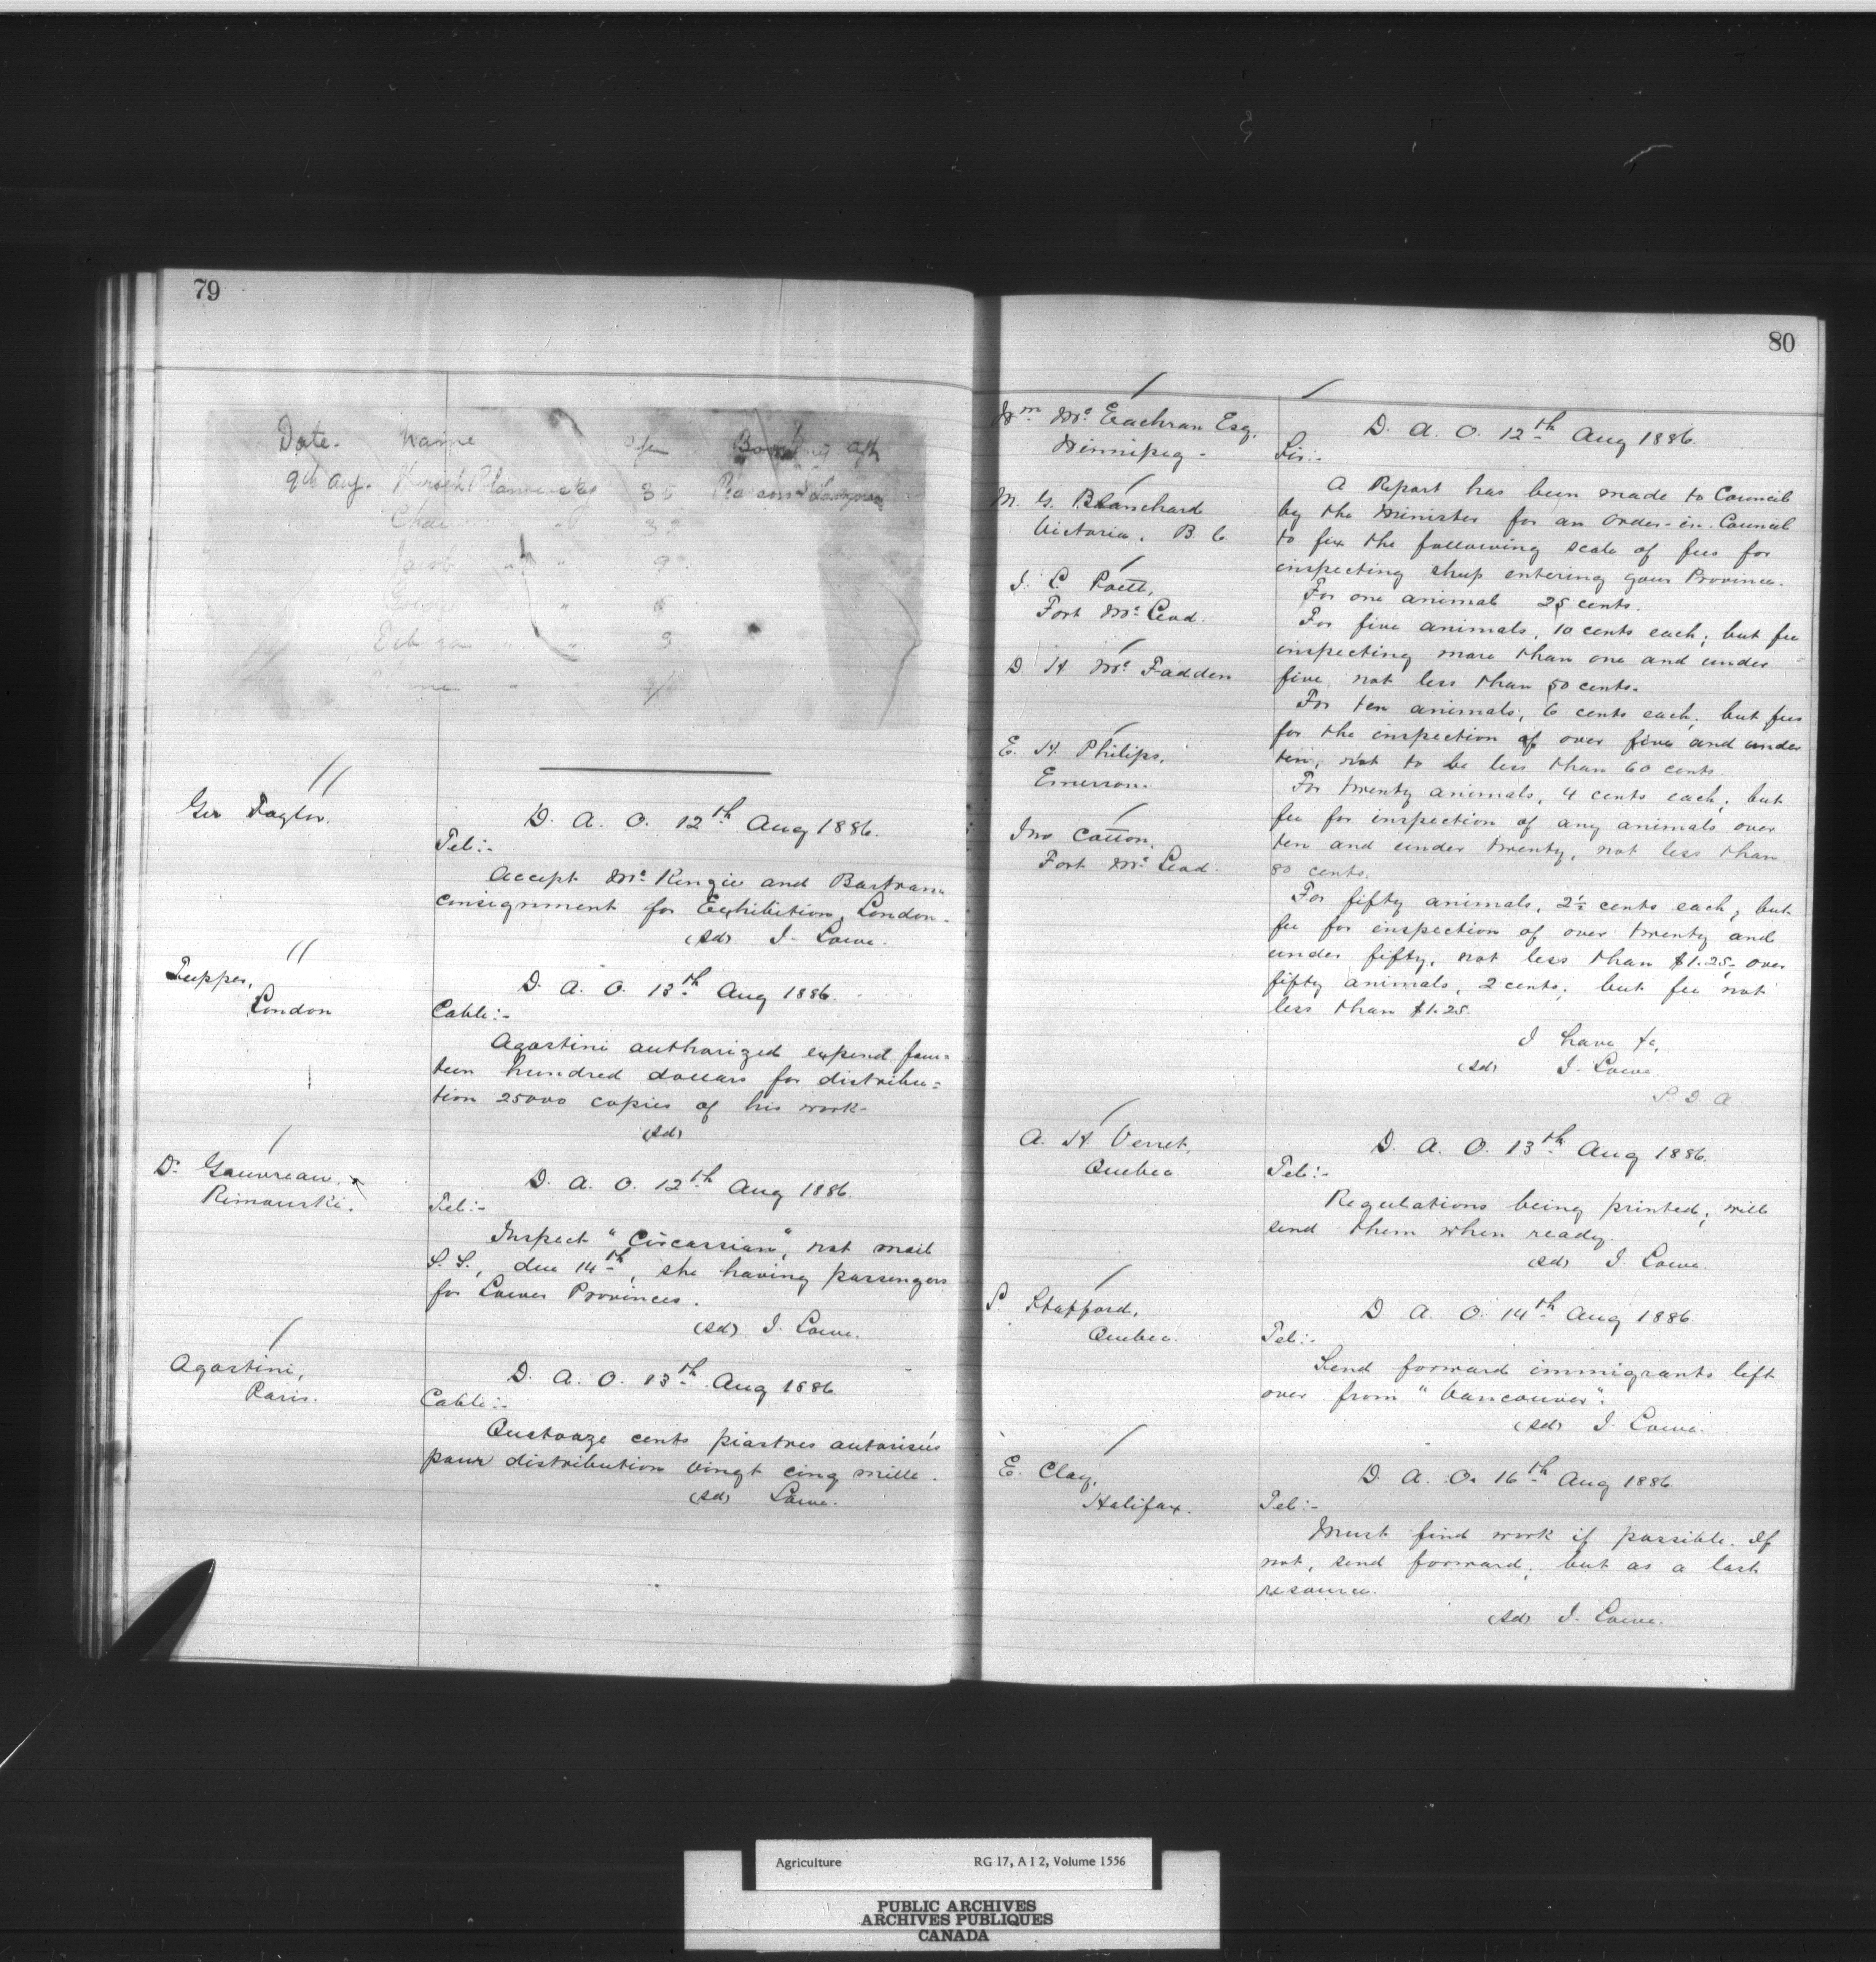 79
Date. Name Age Booking Agt
9th Aug. 35
Jacob " " 9
Geo Taylor.
D. A. O. 12th Aug 1886.
Tel:-
Accept McKenzie and Bartram
consignment for Exhibition, London.
(Sd) J. Lowe.
Tupper,
London
D. A. O. 13th Aug 1886.
Cable:-
Agostini authorized expend four=
teen hundred dollars for distribu=
tion 25000 copies of his work-
(Sd)
Dr Gauvreau,
Rimouski.
D. A. O. 12th Aug 1886.
Tel:-
Inspect "Circassian", not mail
S. S., due 14th, she having passengers
for Lower Provinces.
(Sd) J. Lowe.
Agostini,
Paris.
D. A. O. 13th Aug 1886
Cable:-
Quatorze cents piastres autorisées
pour distribution vingt cinq mille.
(Sd) Lowe.
80
Wm McEachran Esq.
Winnipeg -
M. G. Blanchard
Victoria, B. C
J. L. Poett,
Fort McLeod.
D H McFadden
E. H. Philips,
Emerson.
Jno Cotton,
Fort McLeod.
D. A. O. 12th Aug 1886.
Sir:-
A Report has been made to Council
by the Minister for an Order-in-Council
to fix the following scale of fees for
inspecting sheep entering your Province.
For one animal 25 cents.
For five animals, 10 cents each; but fee
inspecting more than one and under
five, not less than 50 cents.
For ten animals, 6 cents each; but fees
for the inspection of over five and under
ten, not to be less than 60 cents.
For twenty animals, 4 cents each; but
fee for inspection of any animals over
ten and under twenty, not less than
80 cents.
For fifty animals, 2½ cents each; but
fee for inspection of over twenty and
under fifty, not less than $1.25; over
fifty animals, 2 cents; but fee not
less than $1.25.
I have &c,
(Sd) J. Lowe.
S. D. A.
A. H. Verret,
Quebec.
D. A. O. 13th Aug 1886.
Tel:-
Regulations being printed; will
send them when ready.
(Sd) J. Lowe.
P. Stafford,
Quebec.
D A. O. 14th Aug 1886.
Tel:-
Send forward immigrants left
over from "Vancouver".
(Sd) J. Lowe.
E. Clay,
Halifax.
D. A. O. 16th Aug 1886.
Tel:-
Must find work if possible. If
not, send forward; but as a last
resource.
(Sd) J. Lowe.
Agriculture RG 17, A I 2, Volume 1556
PUBLIC ARCHIVES
ARCHIVES PUBLIQUES
CANADA